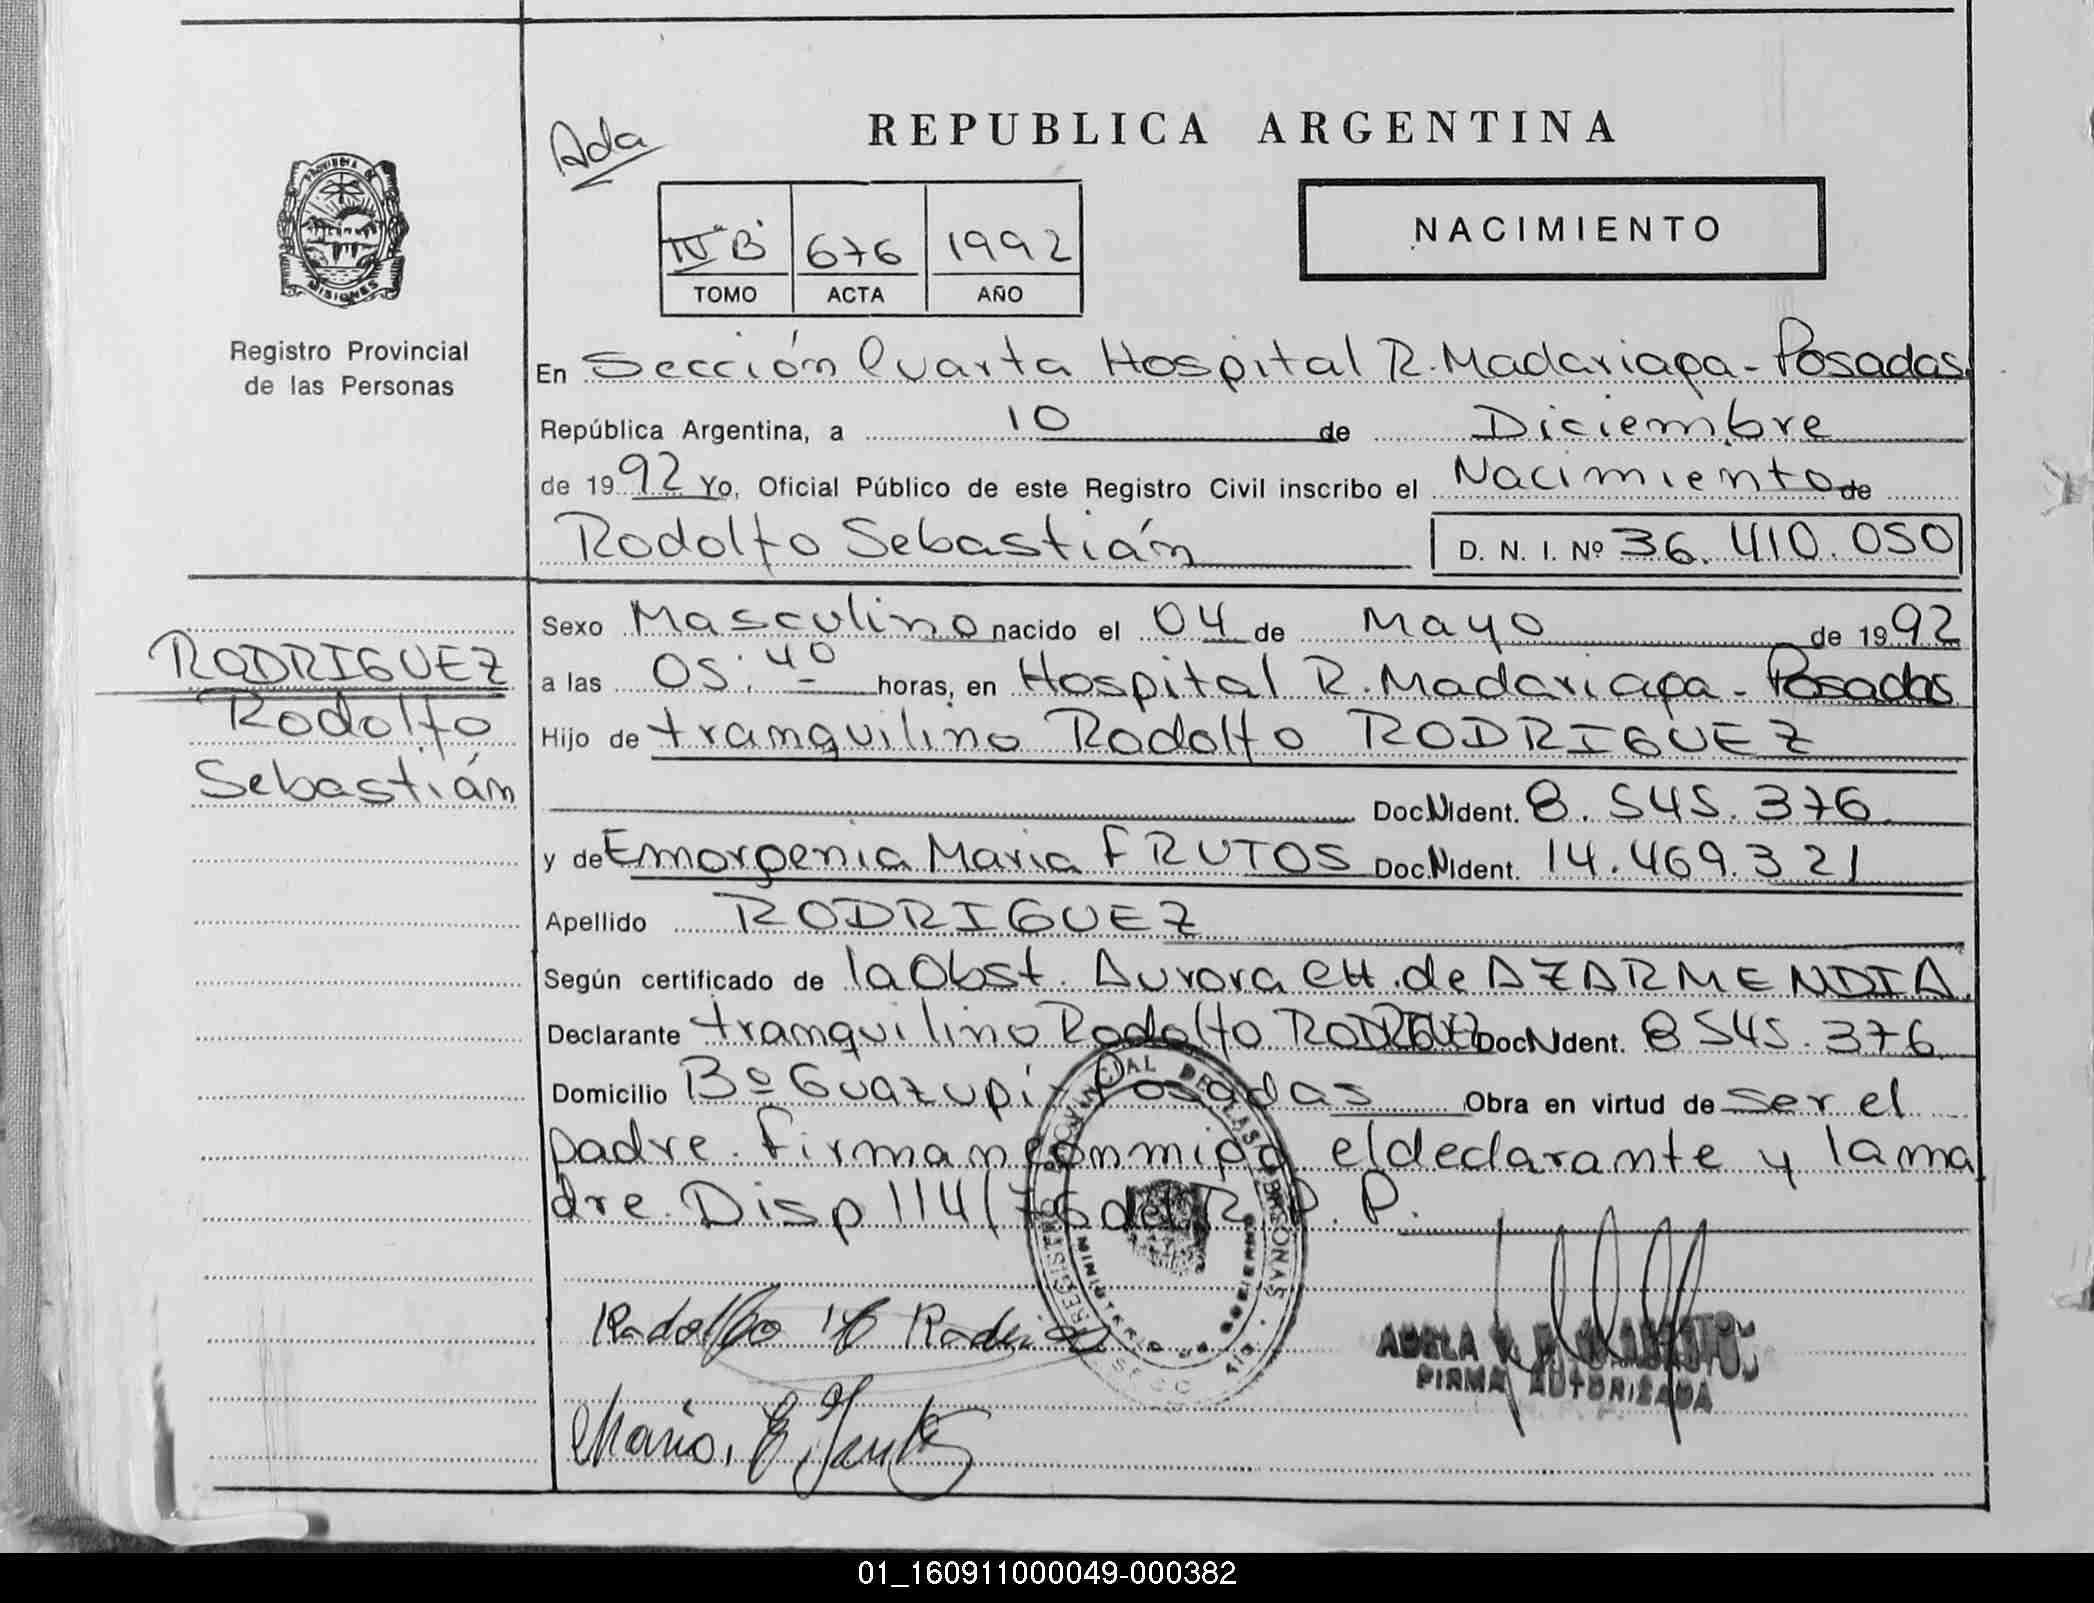 Ada
REPUBLICA ARGENTINA
PROVINCIA DE
MISIONES
IV "B" 676 1992
TOMO ACTA AÑO
NACIMIENTO
Registro Provincial
de las Personas
En Sección Cuarta Hospital R. Madariaga - Posadas
República Argentina, a 10 de Diciembre
de 1992 Yo, Oficial Público de este Registro Civil inscribo el Nacimiento de
Rodolfo Sebastián D. N. I. Nº 36.410.050
RODRIGUEZ
Rodolfo
Sebastián
Sexo Masculino nacido el 04 de Mayo de 1992
a las 05:40 horas, en Hospital R. Madariaga - Posadas
Hijo de tranquilino Rodolfo RODRIGUEZ
Doc.N Ident. 8.545.376
y de Emorgenia Maria FRUTOS Doc.N Ident. 14.469.321
Apellido RODRIGUEZ
Según certificado de la Obst. Aurora CH. de AZARMENDIA
Declarante tranquilino Rodolfo RODRIGUEZ Doc N Ident. 8 545.376
Domicilio Bº Guazupi - Posadas Obra en virtud de ser el
padre. firman conmigo el declarante y la ma
dre. Disp 114/76 del R. P. P.
REGISTRO PROVINCIAL DE LAS PERSONAS
MINISTERIO DE GOBIERNO
Rodolfo
Maria E. Frutos
ADELA
FIRMA AUTORIZADA
01_160911000049-000382